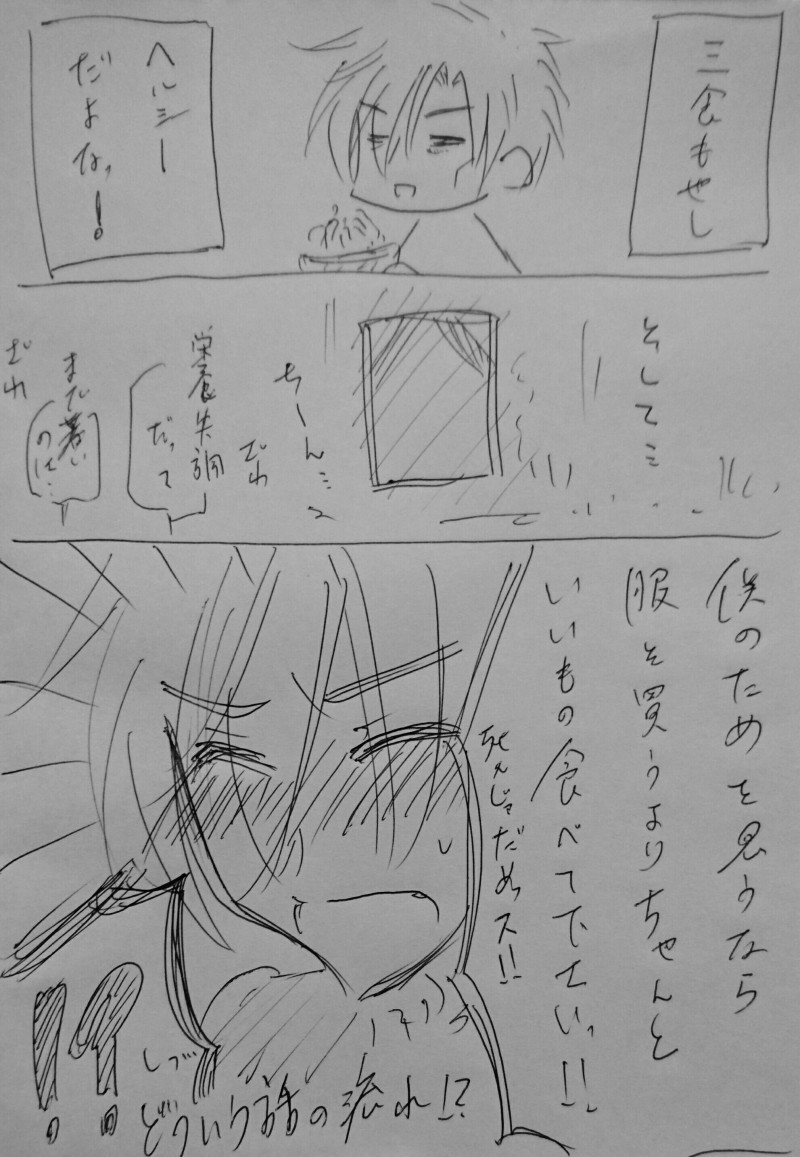 三食もやし
ヘルシー
だよなっ！
そして…
ちーん…
栄養失調
だって
ざわ
まだ若い
のに…
ざわ
僕のためを思うなら
服を買うよりちゃんと
いいもの食べて下さいっ!!
死んじゃだめっス!!
!?
どういう話の流れ!?